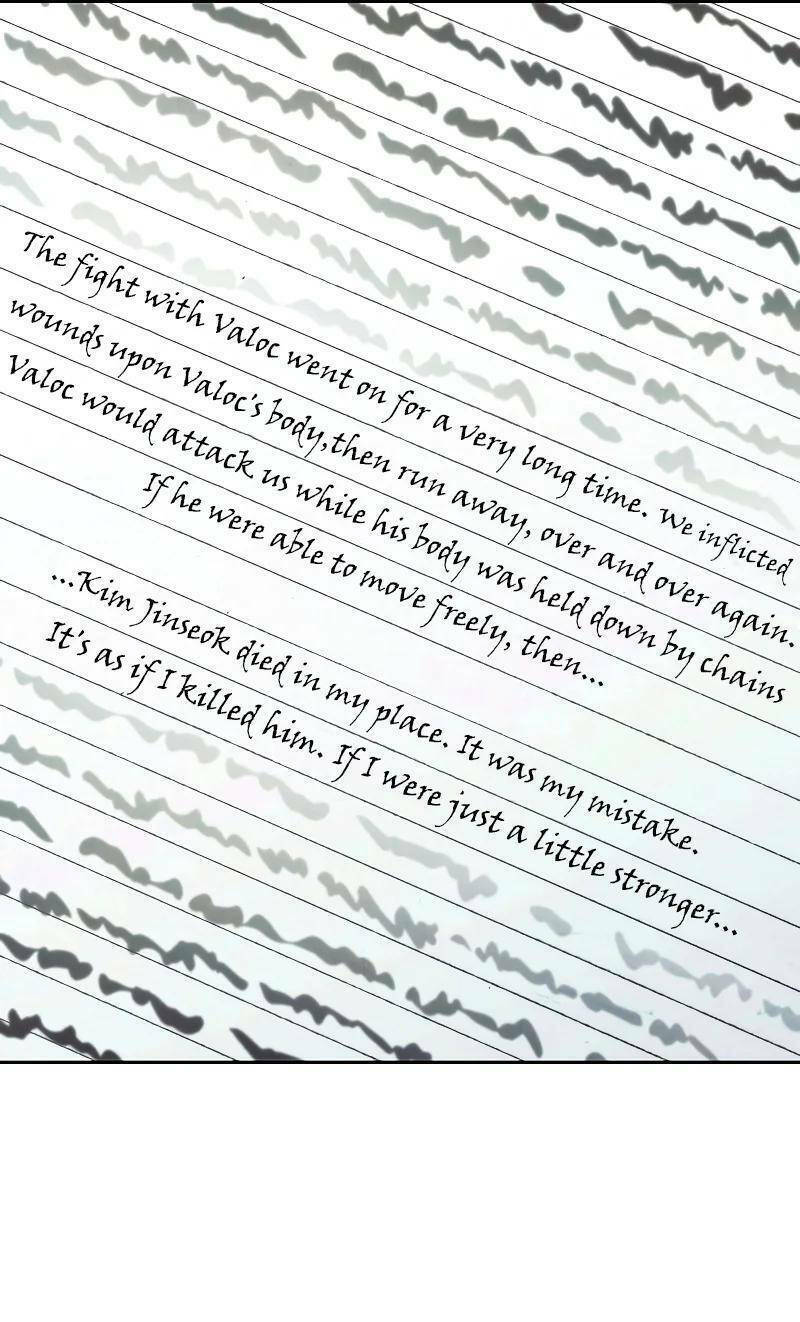 The fight with Valoc went on for a very long time. We inflicted
wounds upon Valoc's body, then run away, over and over again.
Valoc would attack us while his body was held down by chains
If he were able to move freely, then...
...Kim Jinseok died in my place. It was my mistake.
It's as if I killed him. If I were just a little stronger...